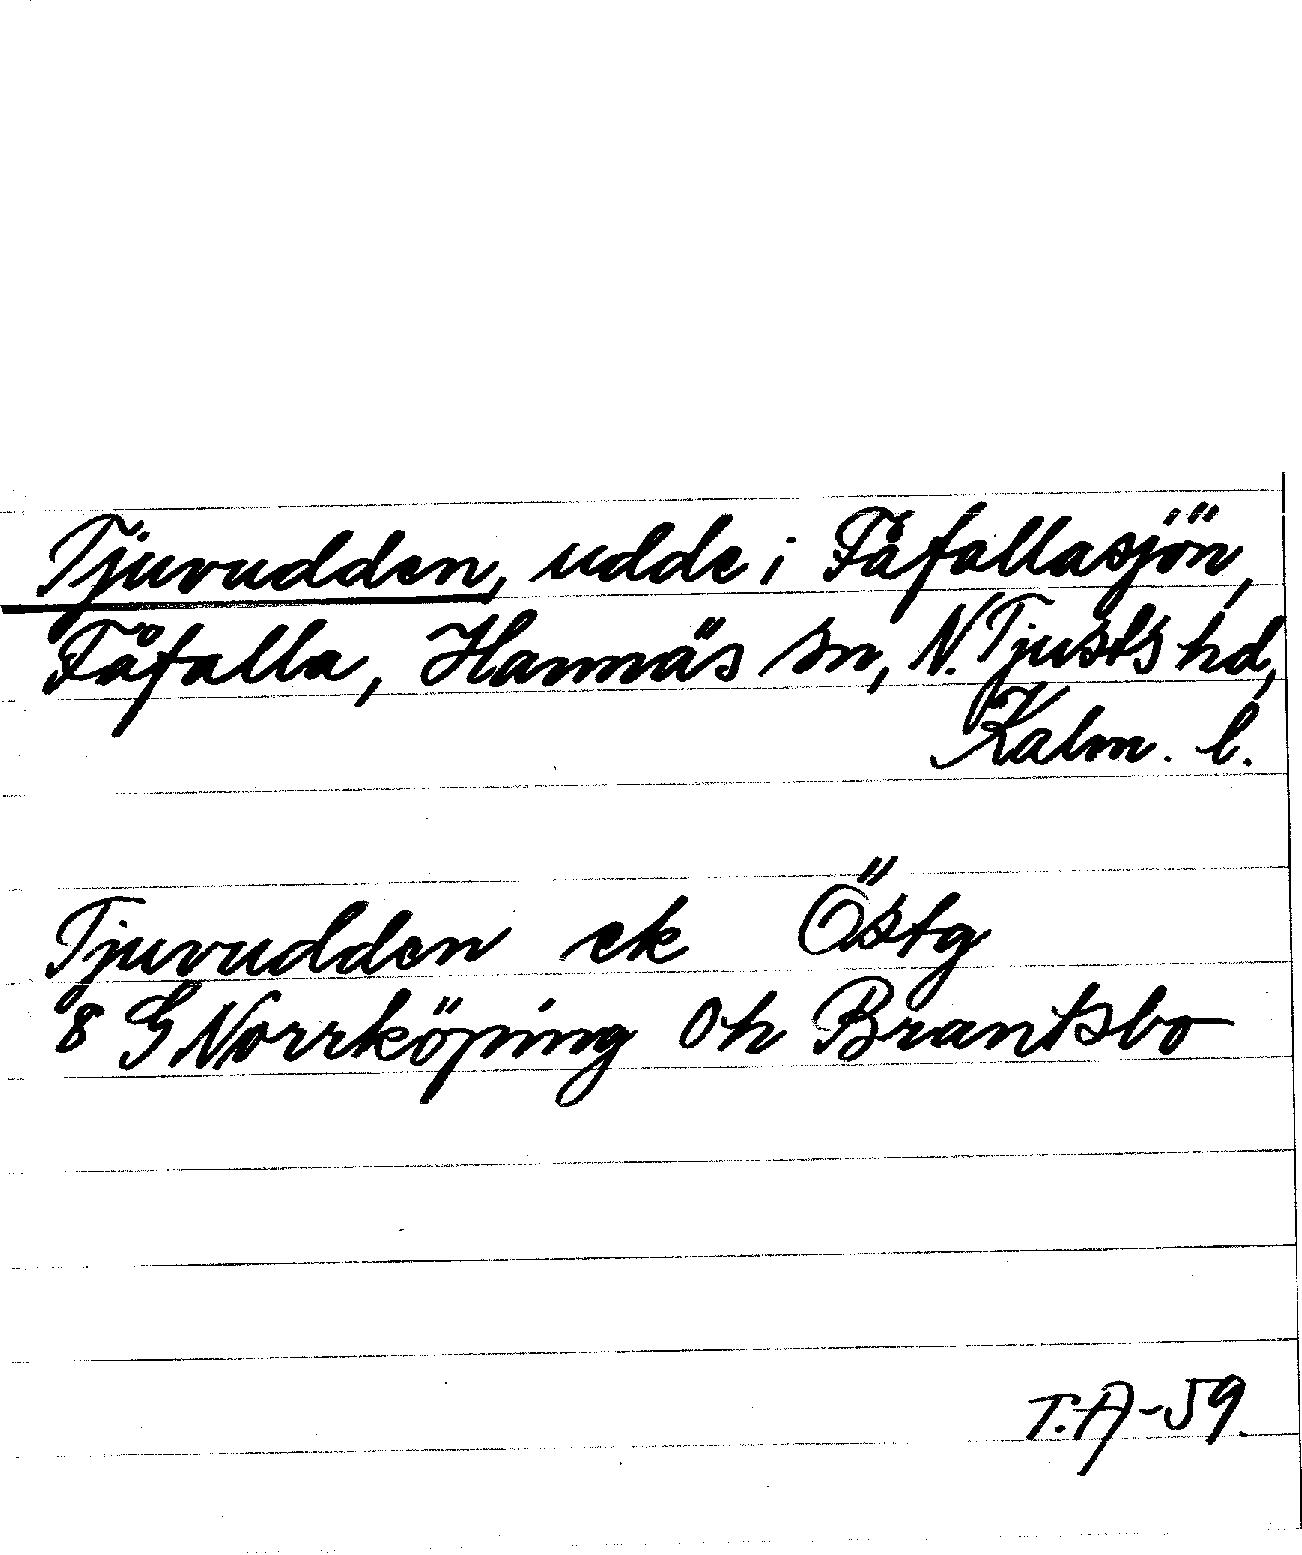 Tjuvudden, udde i Fåfallasjön,
Fåfalla, Hannäs sn, N. Tjusts hd,
Kalm. l.
Tjuvudden ek Östg
8 G Norrköping 0h Brantsbo
T.A-59.